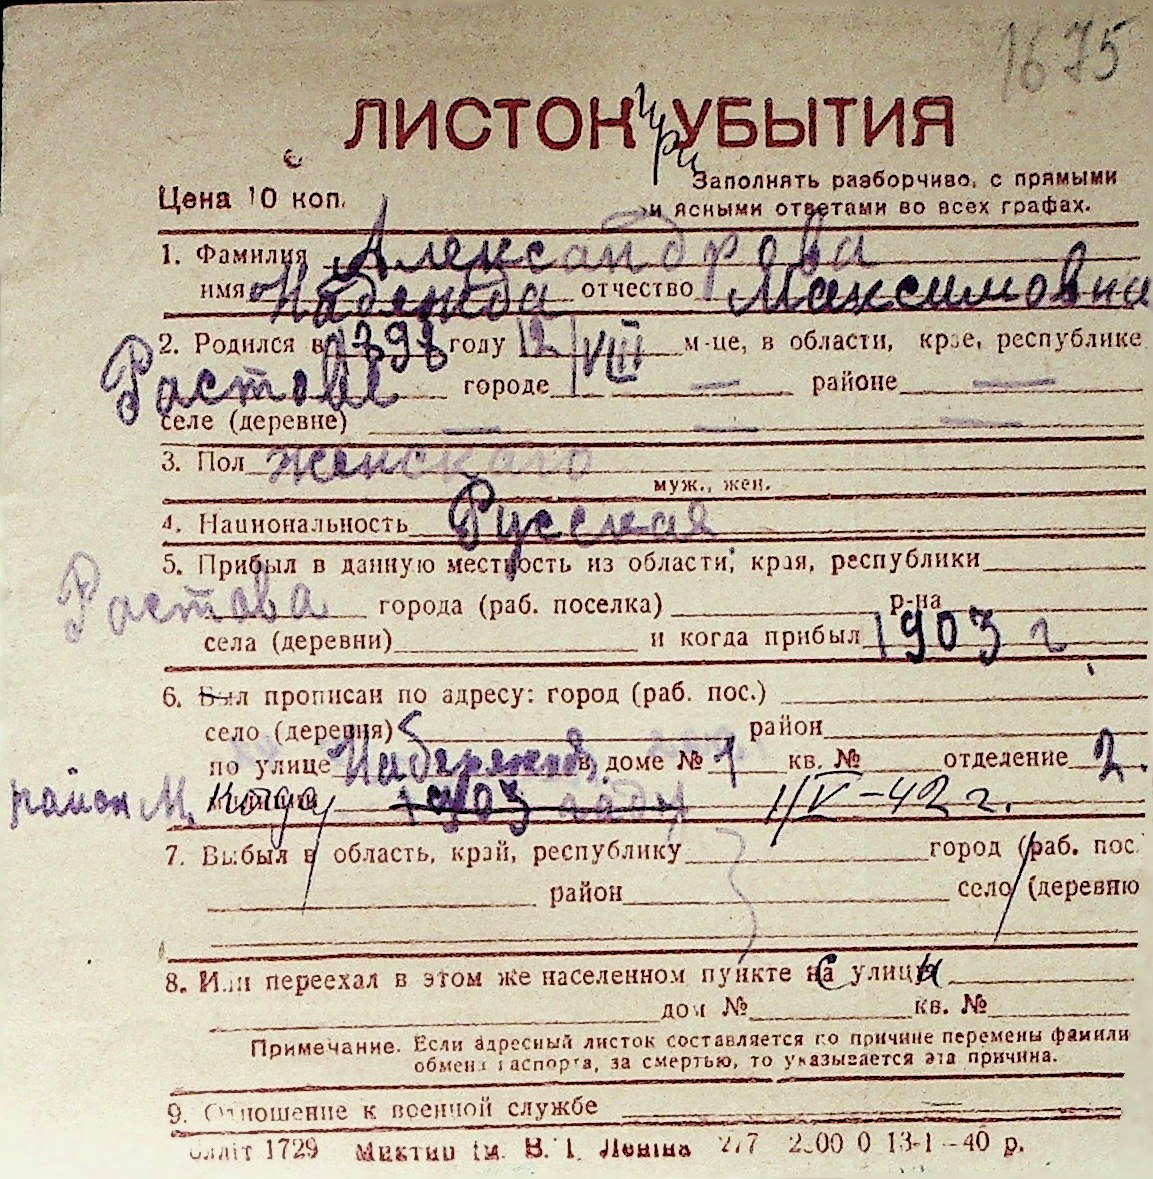 1675
ЛИСТОК УБЫТИЯ
при
Цена 10 коп.
Заполнять разборчиво, с прямыми
и ясными ответами во всех графах.
1. Фамилия Александрова
имя Надежда отчество Максимовна
2. Родился в 1898 году 12/VIII м-це, в области, крае, республике
Растове городе — районе —
селе (деревне) — — —
3. Пол женскаго
муж., жен.
4. Национальность Русская
5. Прибыл в данную местность из области, края, республики
Растова города (раб. поселка) р-на
села (деревни) и когда прибыл 1903 г.
6. Был прописан по адресу: город (раб. пос.)
село (деревня) район
по улице в доме № 1 кв. № отделение 2.
район М. Когда 1903 году 1/V-42 г.
7. Выбыл в область, край, республику город (раб. пос.
район село (деревню
8. Или переехал в этом же населенном пункте с улицы
дом № кв. №
Примечание. Если адресный листок составляется по причине перемены фамили
обмена паспорта, за смертью, то указывается эта причина.
9. Отношение к военной службе —
1729 ім. В. І. Леніна 13-1-40 р.